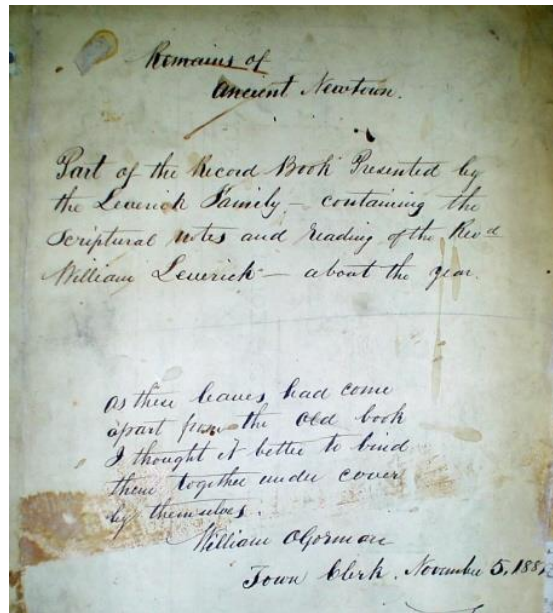 Remains of
Ancient Newtown.
Part of the Record Book Presented by
the Leverick Family – containing the
Scriptural notes and reading of the Revd
William Leverick – about the year.
As these leaves had come
apart from the old book
I thought it better to bind
them together under cover
by themselves.
William OGorman
Town Clerk. November 5, 188